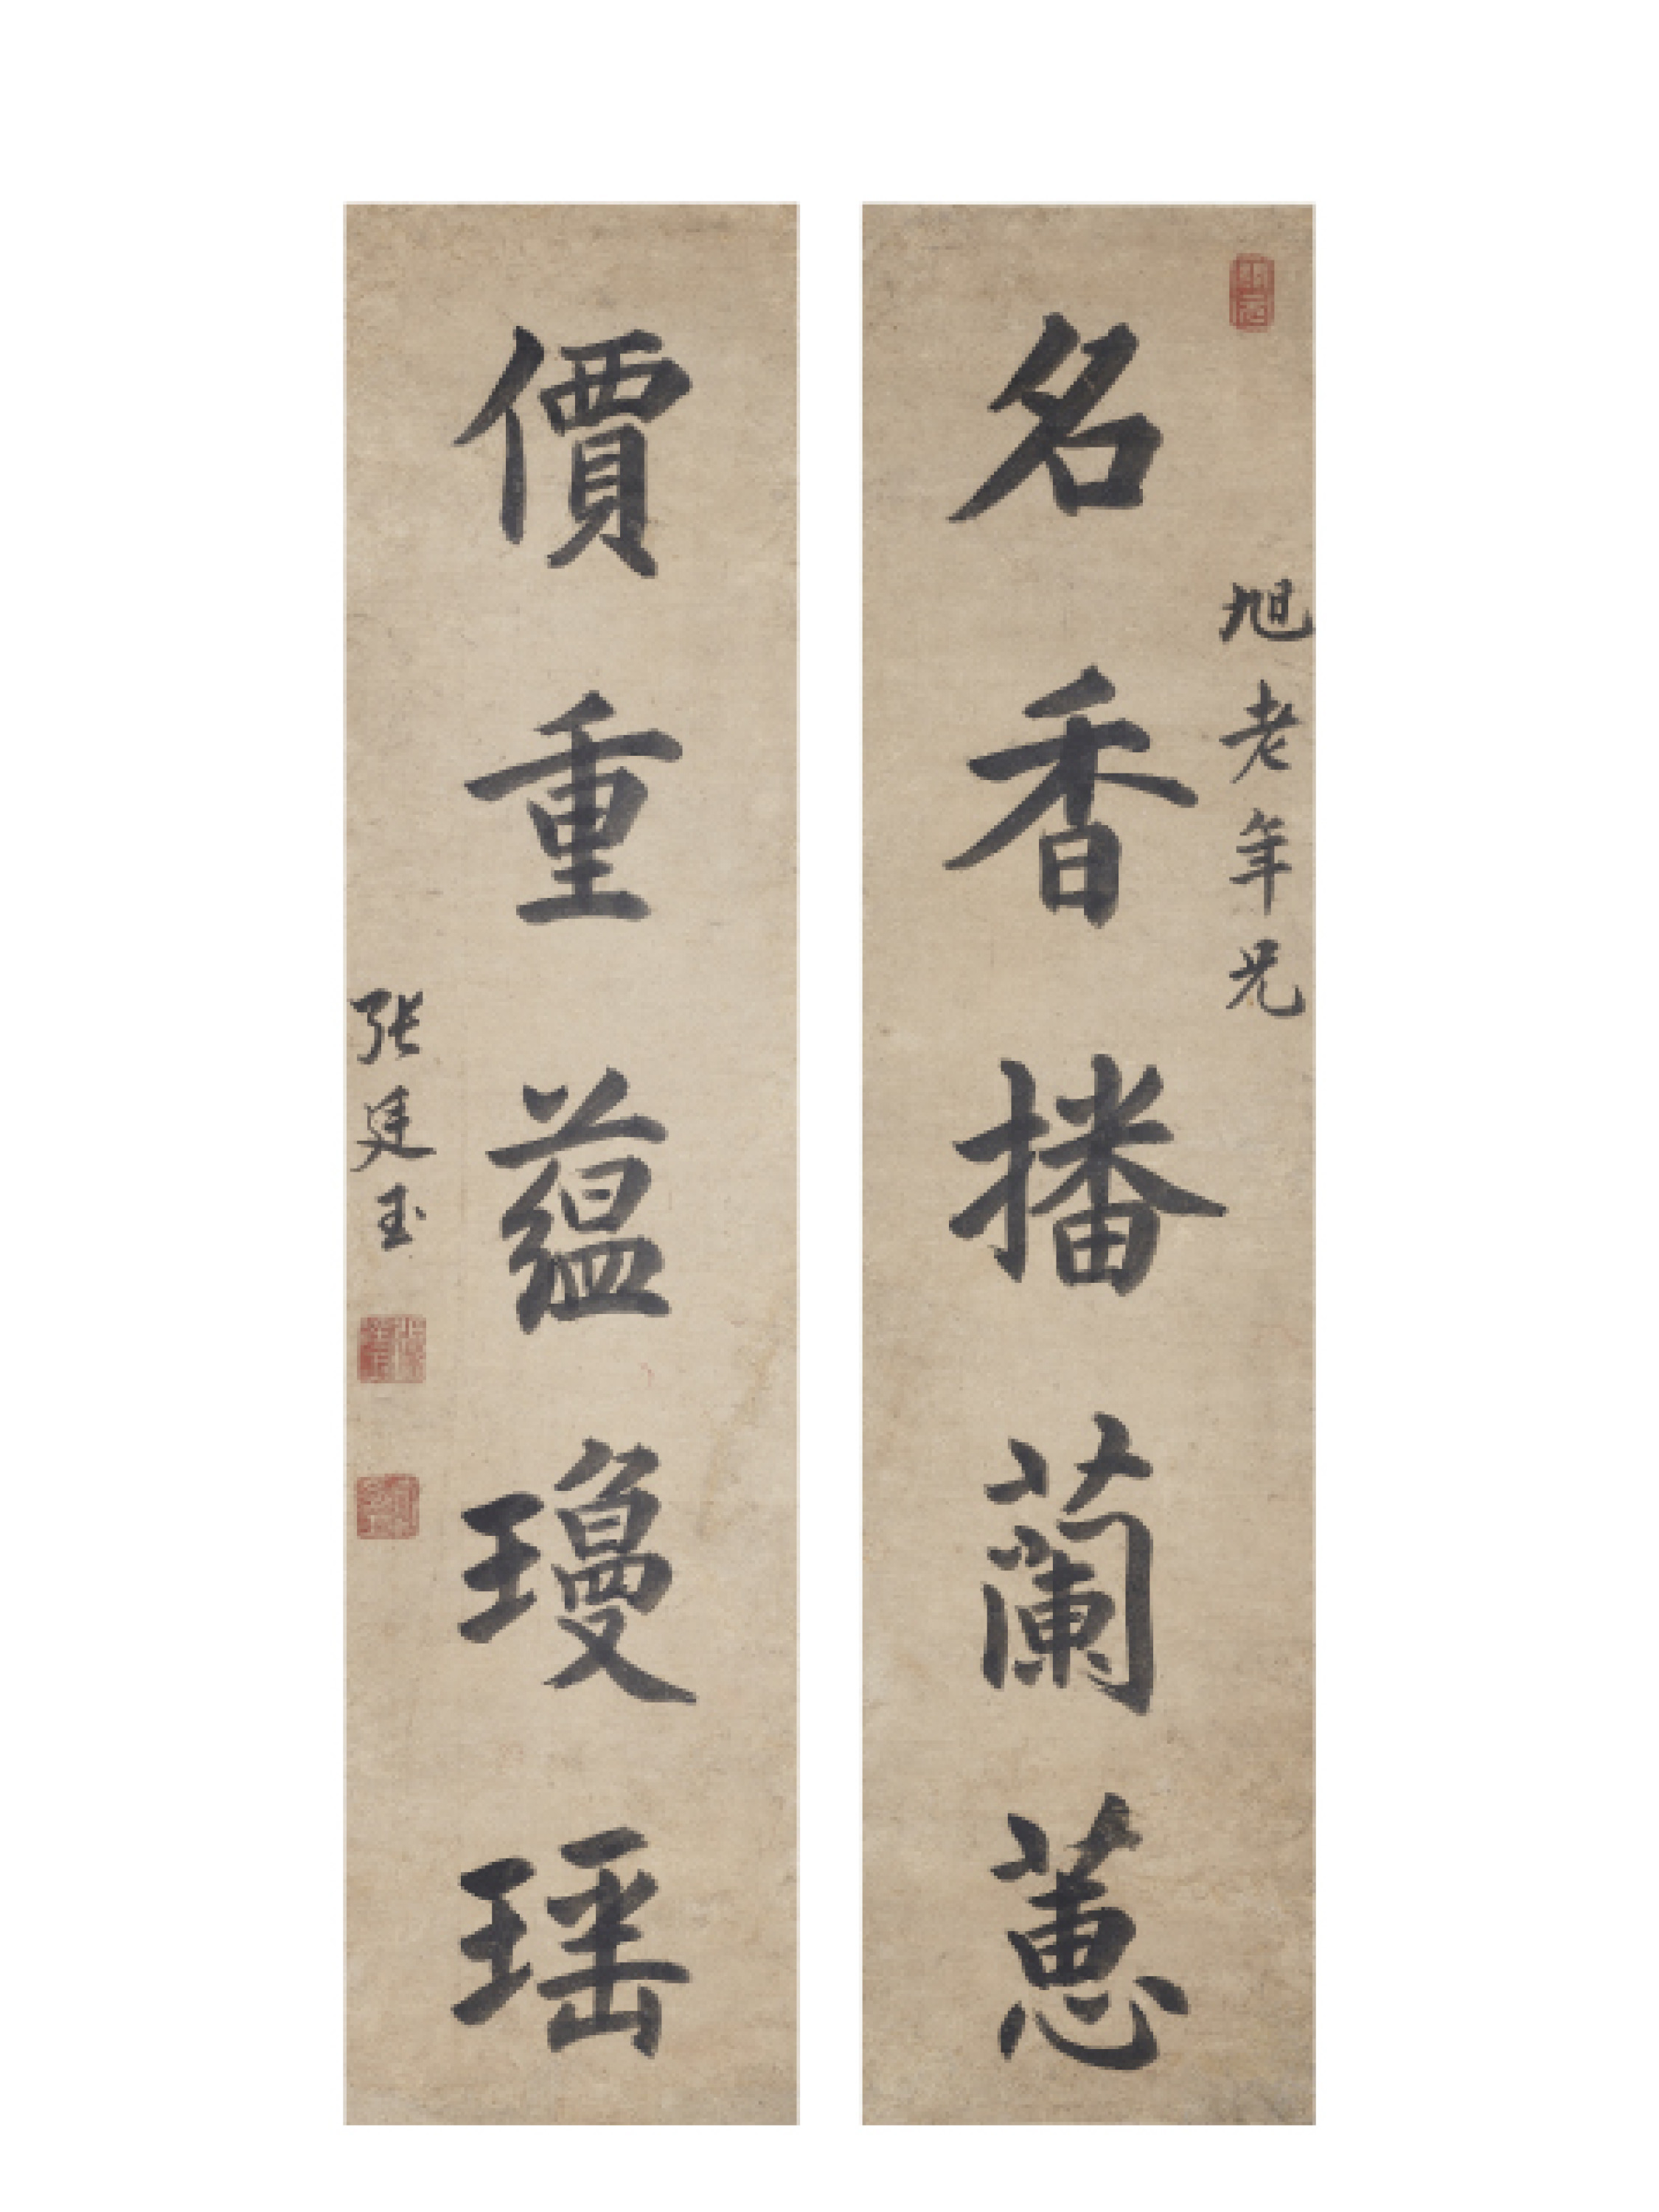 旭老年兄
名香播蘭蕙
價重蘊瓊瑶
張廷玉